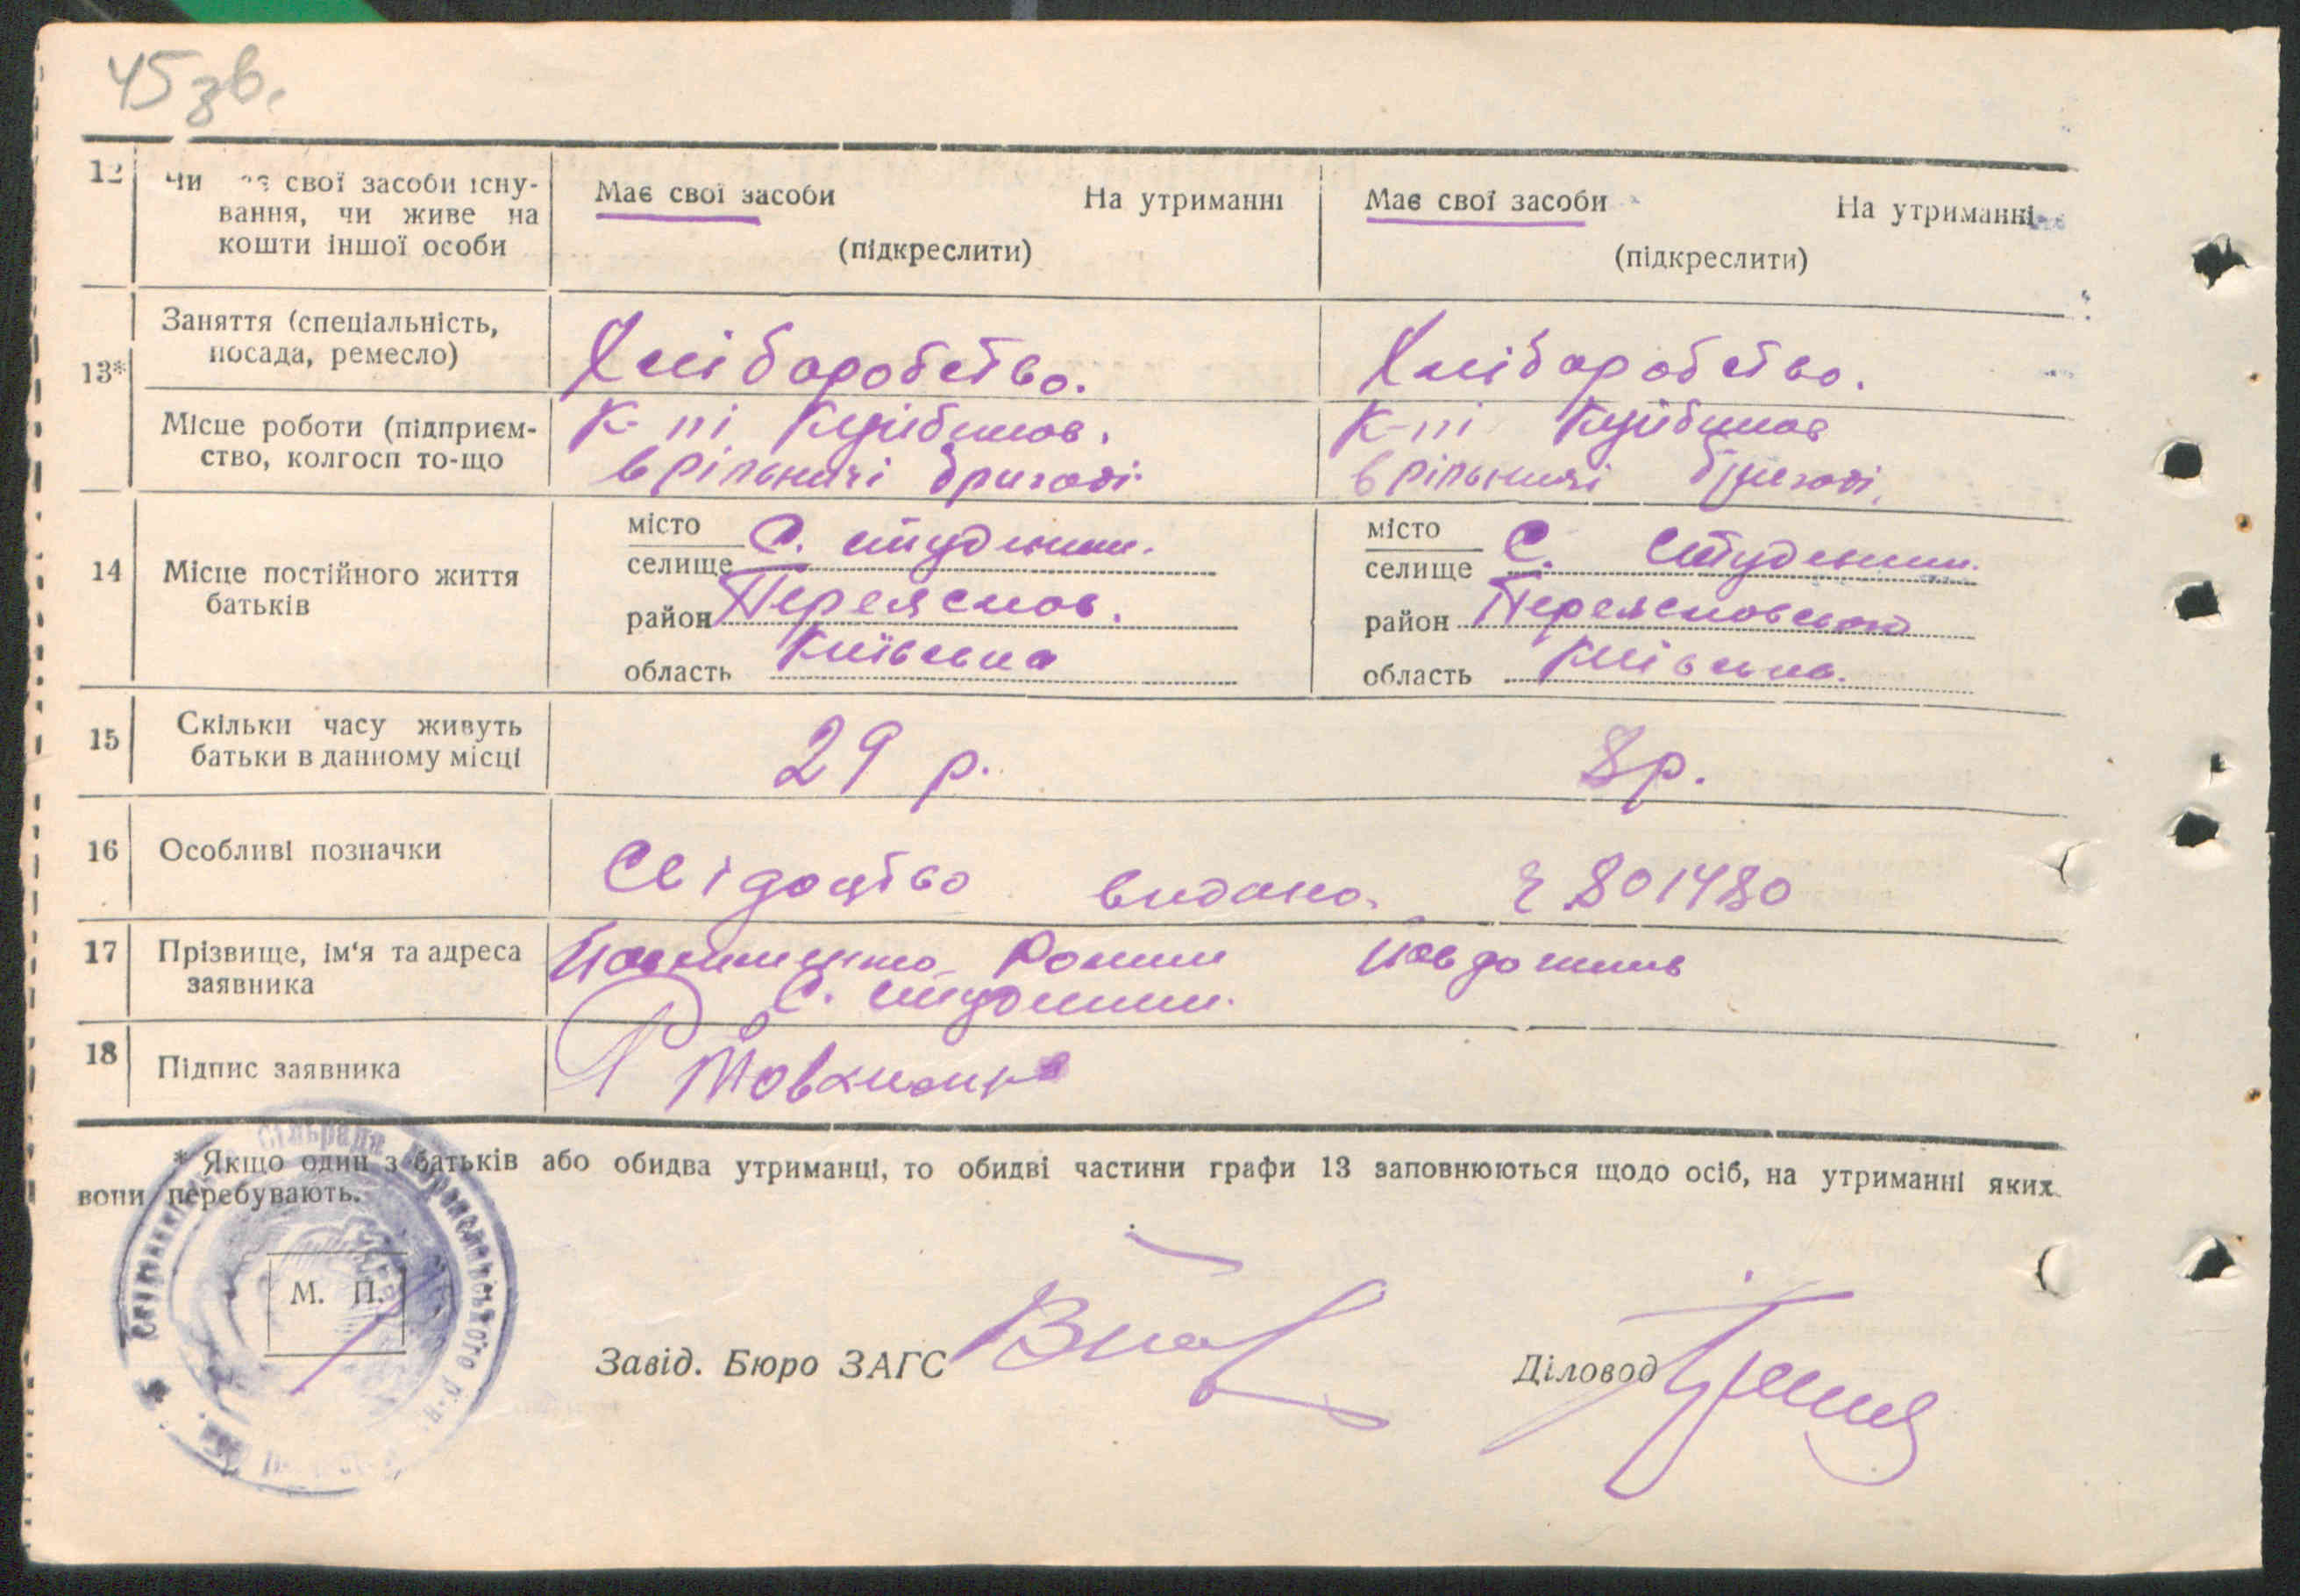 45 зв.
12 Чи має свої засоби існу-
вання, чи живе на
кошти іншої особи
Має свої засоби На утриманні
(підкреслити)
Має свої засоби На утриманні
(підкреслити)
13* Заняття (спеціальність,
посада, ремесло)
Хліборобство.
Хліборобство.
Місце роботи (підприєм-
ство, колгосп то-що
к-пі Куйбишов.
в рільничі бригаді
к-пі Куйбишов
в рільничі бригаді.
14 Місце постійного життя
батьків
місто
селище С. Студеники.
район Переяслов.
область Київська
місто
селище С. Студеники.
район Переясловського
область Київська.
15 Скільки часу живуть
батьки в данному місці
29 р.
8 р.
16 Особливі позначки
Свідоцтво видано. 801480
17 Прізвище, ім'я та адреса
заявника
С. Студеники.
18 Підпис заявника
* Якщо один з батьків або обидва утриманці, то обидві частини графи 13 заповнюються щодо осіб, на утриманні яких
вони перебувають.
М. П.
Завід. Бюро ЗАГС
Діловод